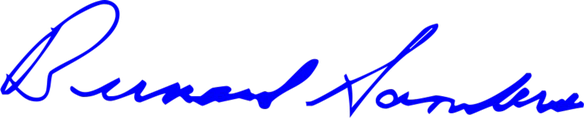 Bernard Sanders